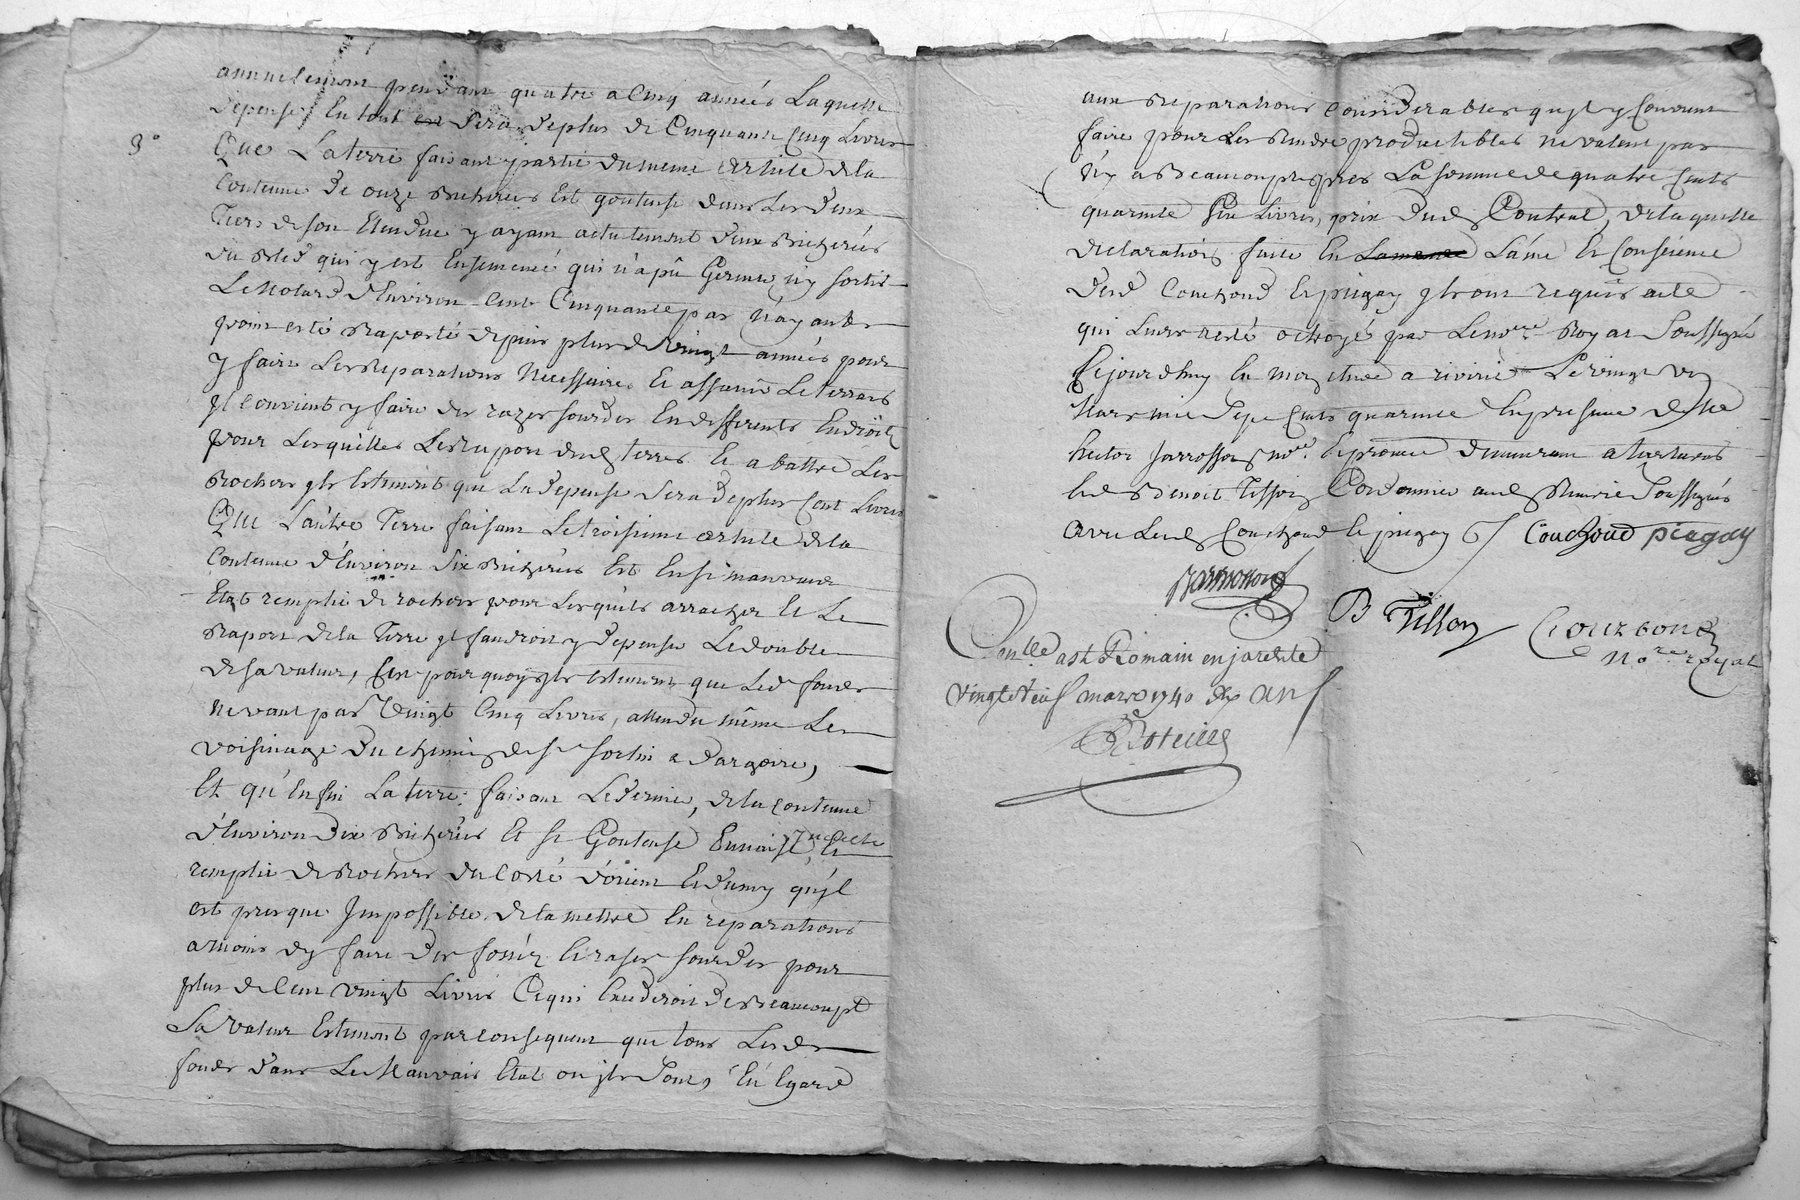 annuelement pendant quatre a Cinq années Laquelle
depense En tout sera deplus de Cinquante Cinq Livres
3°
Que La terre faisant partie dumeme article dela
Contenue de onze Bicherées Est gouteuse dans Les deux
Tiers de son Etendue y ayant actuelement deux Bicherées
du Bled qui y est Ensemencé qui n'a pû Germer ny sortir
d'Environ Cent Cinquante pas N'ayant
point esté Raporté depuis plus de vingt années pour
y faire Les Reparations Necessaires Et Le terrain
Jl convient y faire des razes sourdes En differents Endroits
pour Lesquelles Le Raport dud terres Et a battre Les
Rochers jls Estiment que La depense sera deplus Cent Livres
Que L'autre Terre faisant Letroisieme article dela
Contenue d'Environ Six Bicherées Est En si mauvais
Etat remplie de rochers pour Lesquels arracher Et Le
Raport dela Terre jl faudroit y depenser Ledouble
desa valeur, C'est pourquoy jls Estiment que Led fonds
ne vaut pas Vingt Cinq Livres, attendu même Le
voisinage du chemin de St Sorlin a dargoire,
Et qu'Enfin La terre faisant Lédernier, dela contenue
d'Environ Dix Bicherées Et Si Gouteuse
remplie de Rochers du Costé d'orient qu'jl
est presque Jmpossible dela mettre En reparations
amoins dy faire des fossés Et rases sourdes pour
plus de Cent vingt Livres Cequi Excederoit de Beaucoupt
Sa valeur Estimant par consequent que tous Lesds
fonds dans Le Mauvais Etat ou jls sont, En Egard
aux Reparations considerables qujl y Convient
faire pour Les Rendre productibles ne valent pas
N'y a Beaucoup Prés La somme de quatre Cents
quarante Six Livres, prix dud Contrat, de laquelle
declaration faite En L'ame Et Consience
desd Couchoud Et piegay jls ont requis acte
qui Leur aesté octroyé par Leno.re Royal Soussigné
Cejourdhuy En Mon étude a riverie Le vingt
Mars mil Sept Cents quarante En presence de Me
hector no.re
Et de Benoit Tisson Cordonnier aud Riverie Soussignés
avec Lesd Couchoud Et piegay Couchoud piegay
B Tisson
no.re royal
Conllé a St Romain en jarest le
vingt neuf mars 1740